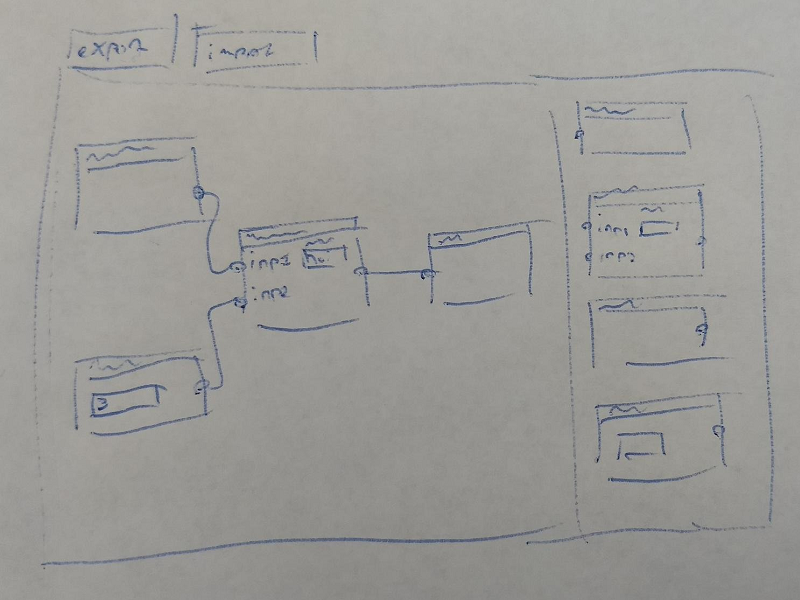 export
import
inp1
inp2
3
inp1
inp2